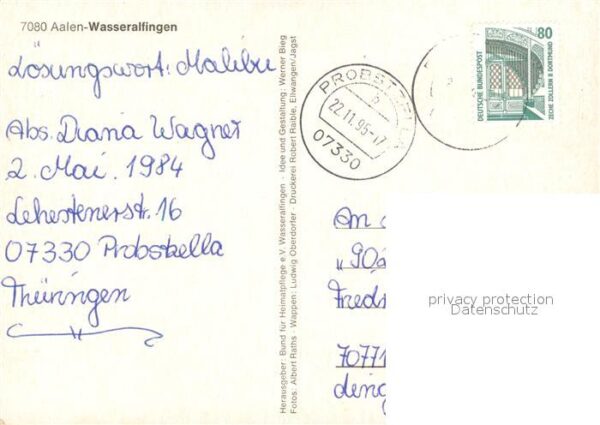 7080 Aalen-Wasseralfingen
Lösungswort: Malibu
Abs. Diana Wagner
2. Mai. 1984
Lehestenerstr. 16
07330 Probstzella
Thüringen
Herausgeber: Bund für Heimatpflege e.V. Wasseralfingen - Idee und Gestaltung: Werner Bieg
Fotos: Albert Raths - Wappen: Ludwig Oberdorfer - Druckerei Robert Raible, Ellwangen/Jagst
PROBSTZELLA
b
22.11.95-17
07330
80
DEUTSCHE BUNDESPOST
ZECHE ZOLLERN II DORTMUND
An
"90
Freds
70771
ding
privacy protection
Datenschutz